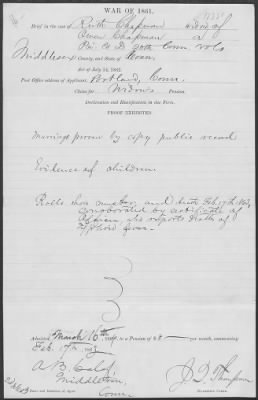 WAR OF 1861.
Brief in the case of Ruth Chapman widow of
Owen Chapman a
Co. D 20th Conn. Vols
Middlesex County, and State of Conn.
Act of July 14, 1862.
Post Office address of Applicant, Portland, Conn.
Claim for Widows Pension.
Declaration and Identification in Due Form.
PROOF EXHIBITED
Marriage proven by copy public record
Evidence of children.
Rolls show muster and death Feb. 17th
corroborated by certificate of
also reports death of
Typhoid fever.
Admitted March 16th to a Pension of $8 per month, commencing
Feb. 17th
A B Calef,
Middletown,
Conn
J D Thompson
Examining Clerk.
Name and Residence of Agent.